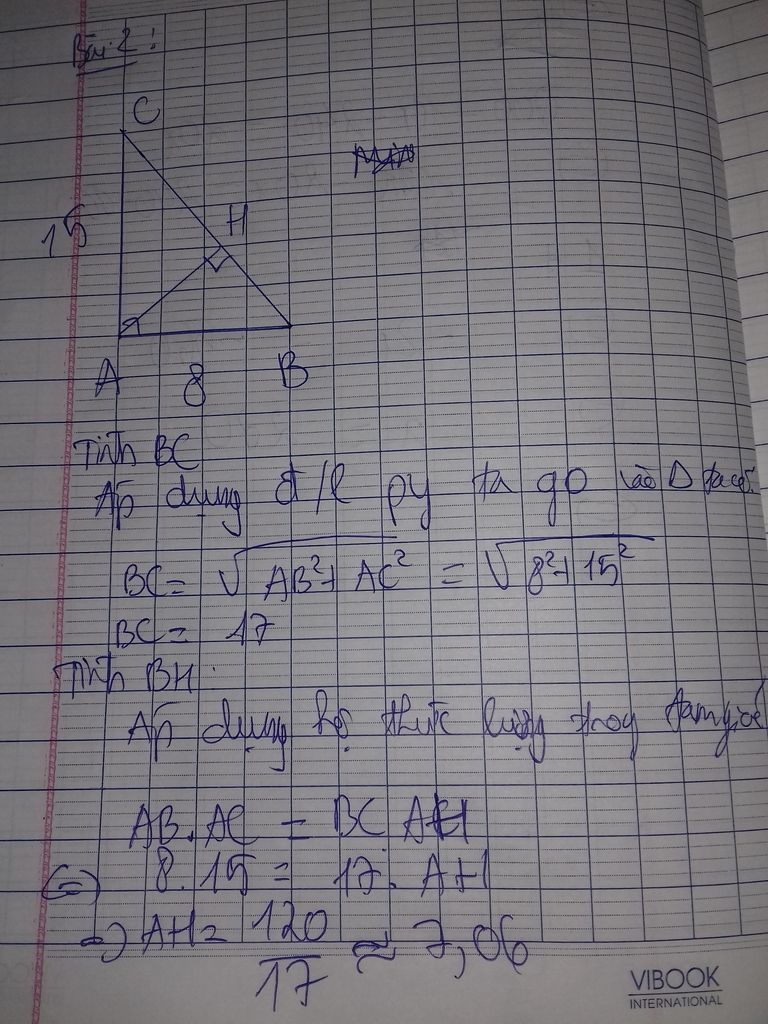 Bài 2:
C
15
H
A 8 B
Tính BC
Áp dụng đ/l py ta go vào Δ ta có:
BC = √AB² + AC² = √8² + 15²
BC = 17
Tính BH:
Áp dụng hệ thức lượng trog tam giác
AB. AC = BC AH
(=) 8. 15 = 17. AH
=> AH = 120/17 ≈ 7,06
VIBOOK
INTERNATIONAL